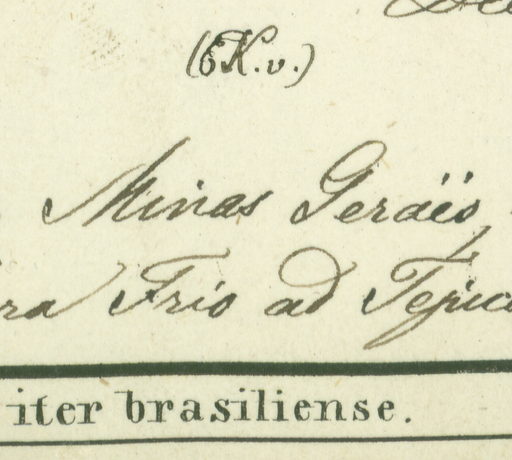 (EK.v.)
Minas Geraës,
ra Frio ad Tejuco
iter brasiliense.